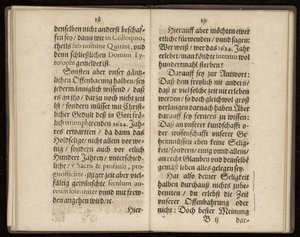 18
denselben nicht anderst beschaf-
fen sey / dann wie in Colloquio,
theils sub nomine Quirini, und
dem schließlichen Domini Ty-
rosophi gemeldet ist.
Sonsten aber unser gäntz-
lichen Offenbarung halben / sey
jedermänniglich wissend / daß
es an ihr / darzu noch nicht Zeit
ist / sondern müsset mit Christ-
licher Gedult deß in Gott frö-
lich triumphirenden 1624. Jahrs
erwarten / da dann das
Holdselige / nicht allein vor we-
nig / sondern auch vor etlich
Hundert Jahren / unterschied-
liche / sacris & profanis, pro-
gnosticirte / itziger zeit aber viel-
fältig gewünschte seculum au-
reum widerumb und mit freu-
den angehen wird / ꝛc.
Hier-
19
Hierauff aber möchten ewer
etliche fürwenden / unnd sagen:
Wer weiß / wer das 1624. Jahr
erlebe / man köndte interim wol
hundertmahl sterben?
Darauff sey zur Antwort:
Daß dem freylich mit anders /
daß je viel solche zeit nit erleben
werden / so doch gleichwol groß
verlangen darnach haben. Aber
darauff sey ferners zu wissen:
Daß an unserer kundschafft o-
der wissenschafft unserer Ge-
heimnussen eben keine Selig-
keit / sondern einig / unnd allein
am recht Glauben und demselbē
gemäß leben alles gelegen sey.
Hat also deiner Seligkeit
halben durchauß nichts zube-
deutten / du erlebst die Zeit
unserer Offenbahrung oder
nicht: Doch bester Meinung
B ij
dar-